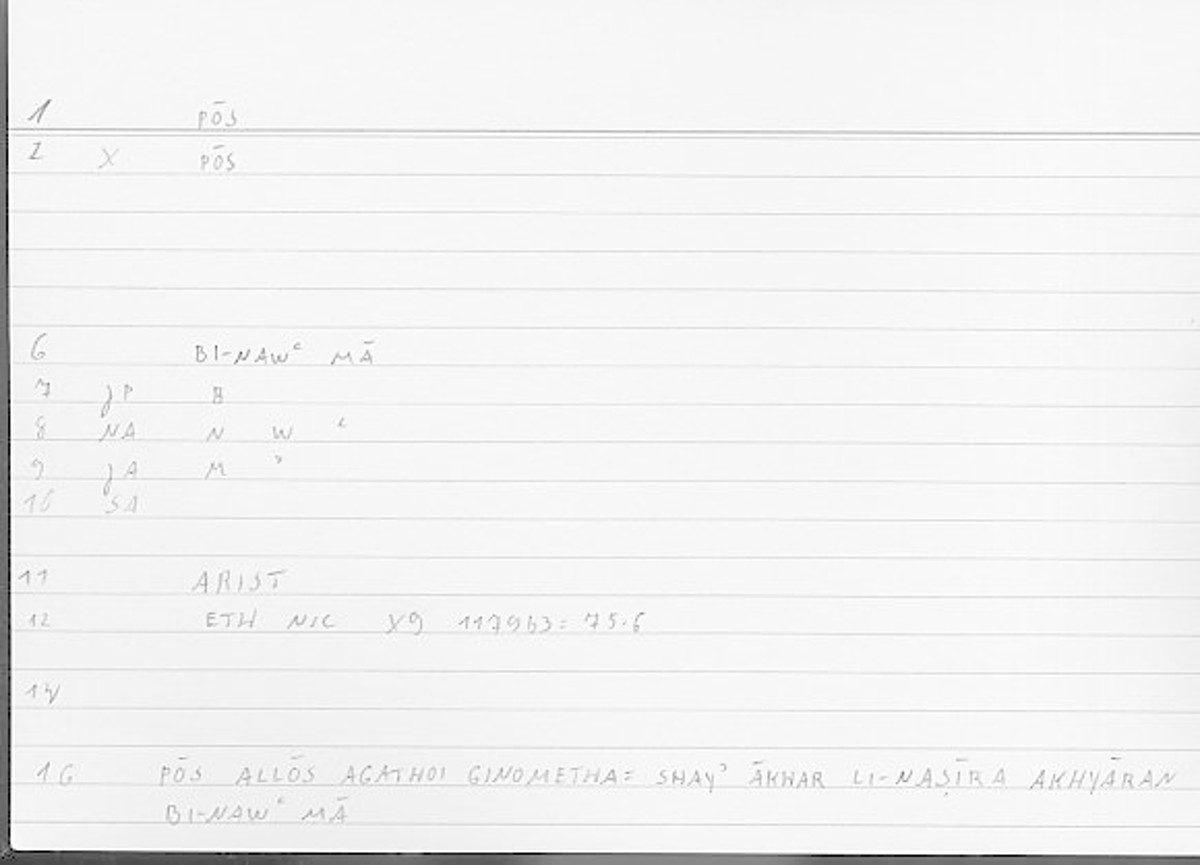 1 PŌS
2 X PŌS
6 BI-NAWʿ MĀ
7 jP B
8 NA N W ʿ
9 jA M ʾ
10 SA
11 ARIST
12 ETH NIC X9 1179b3: 75.6
14
16 PŌS ALLŌS AGATHOI GINOMETHA = SHAYʾ ĀKHAR LI-NAṢĪRA AKHYĀRAN
BI-NAWʿ MĀ